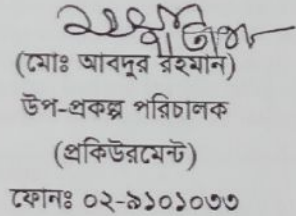 (মোঃ আবদুর রহমান)
উপ-প্রকল্প পরিচালক
(প্রকিউরমেন্ট)
ফোনঃ ০২-৯১০১০৩৩